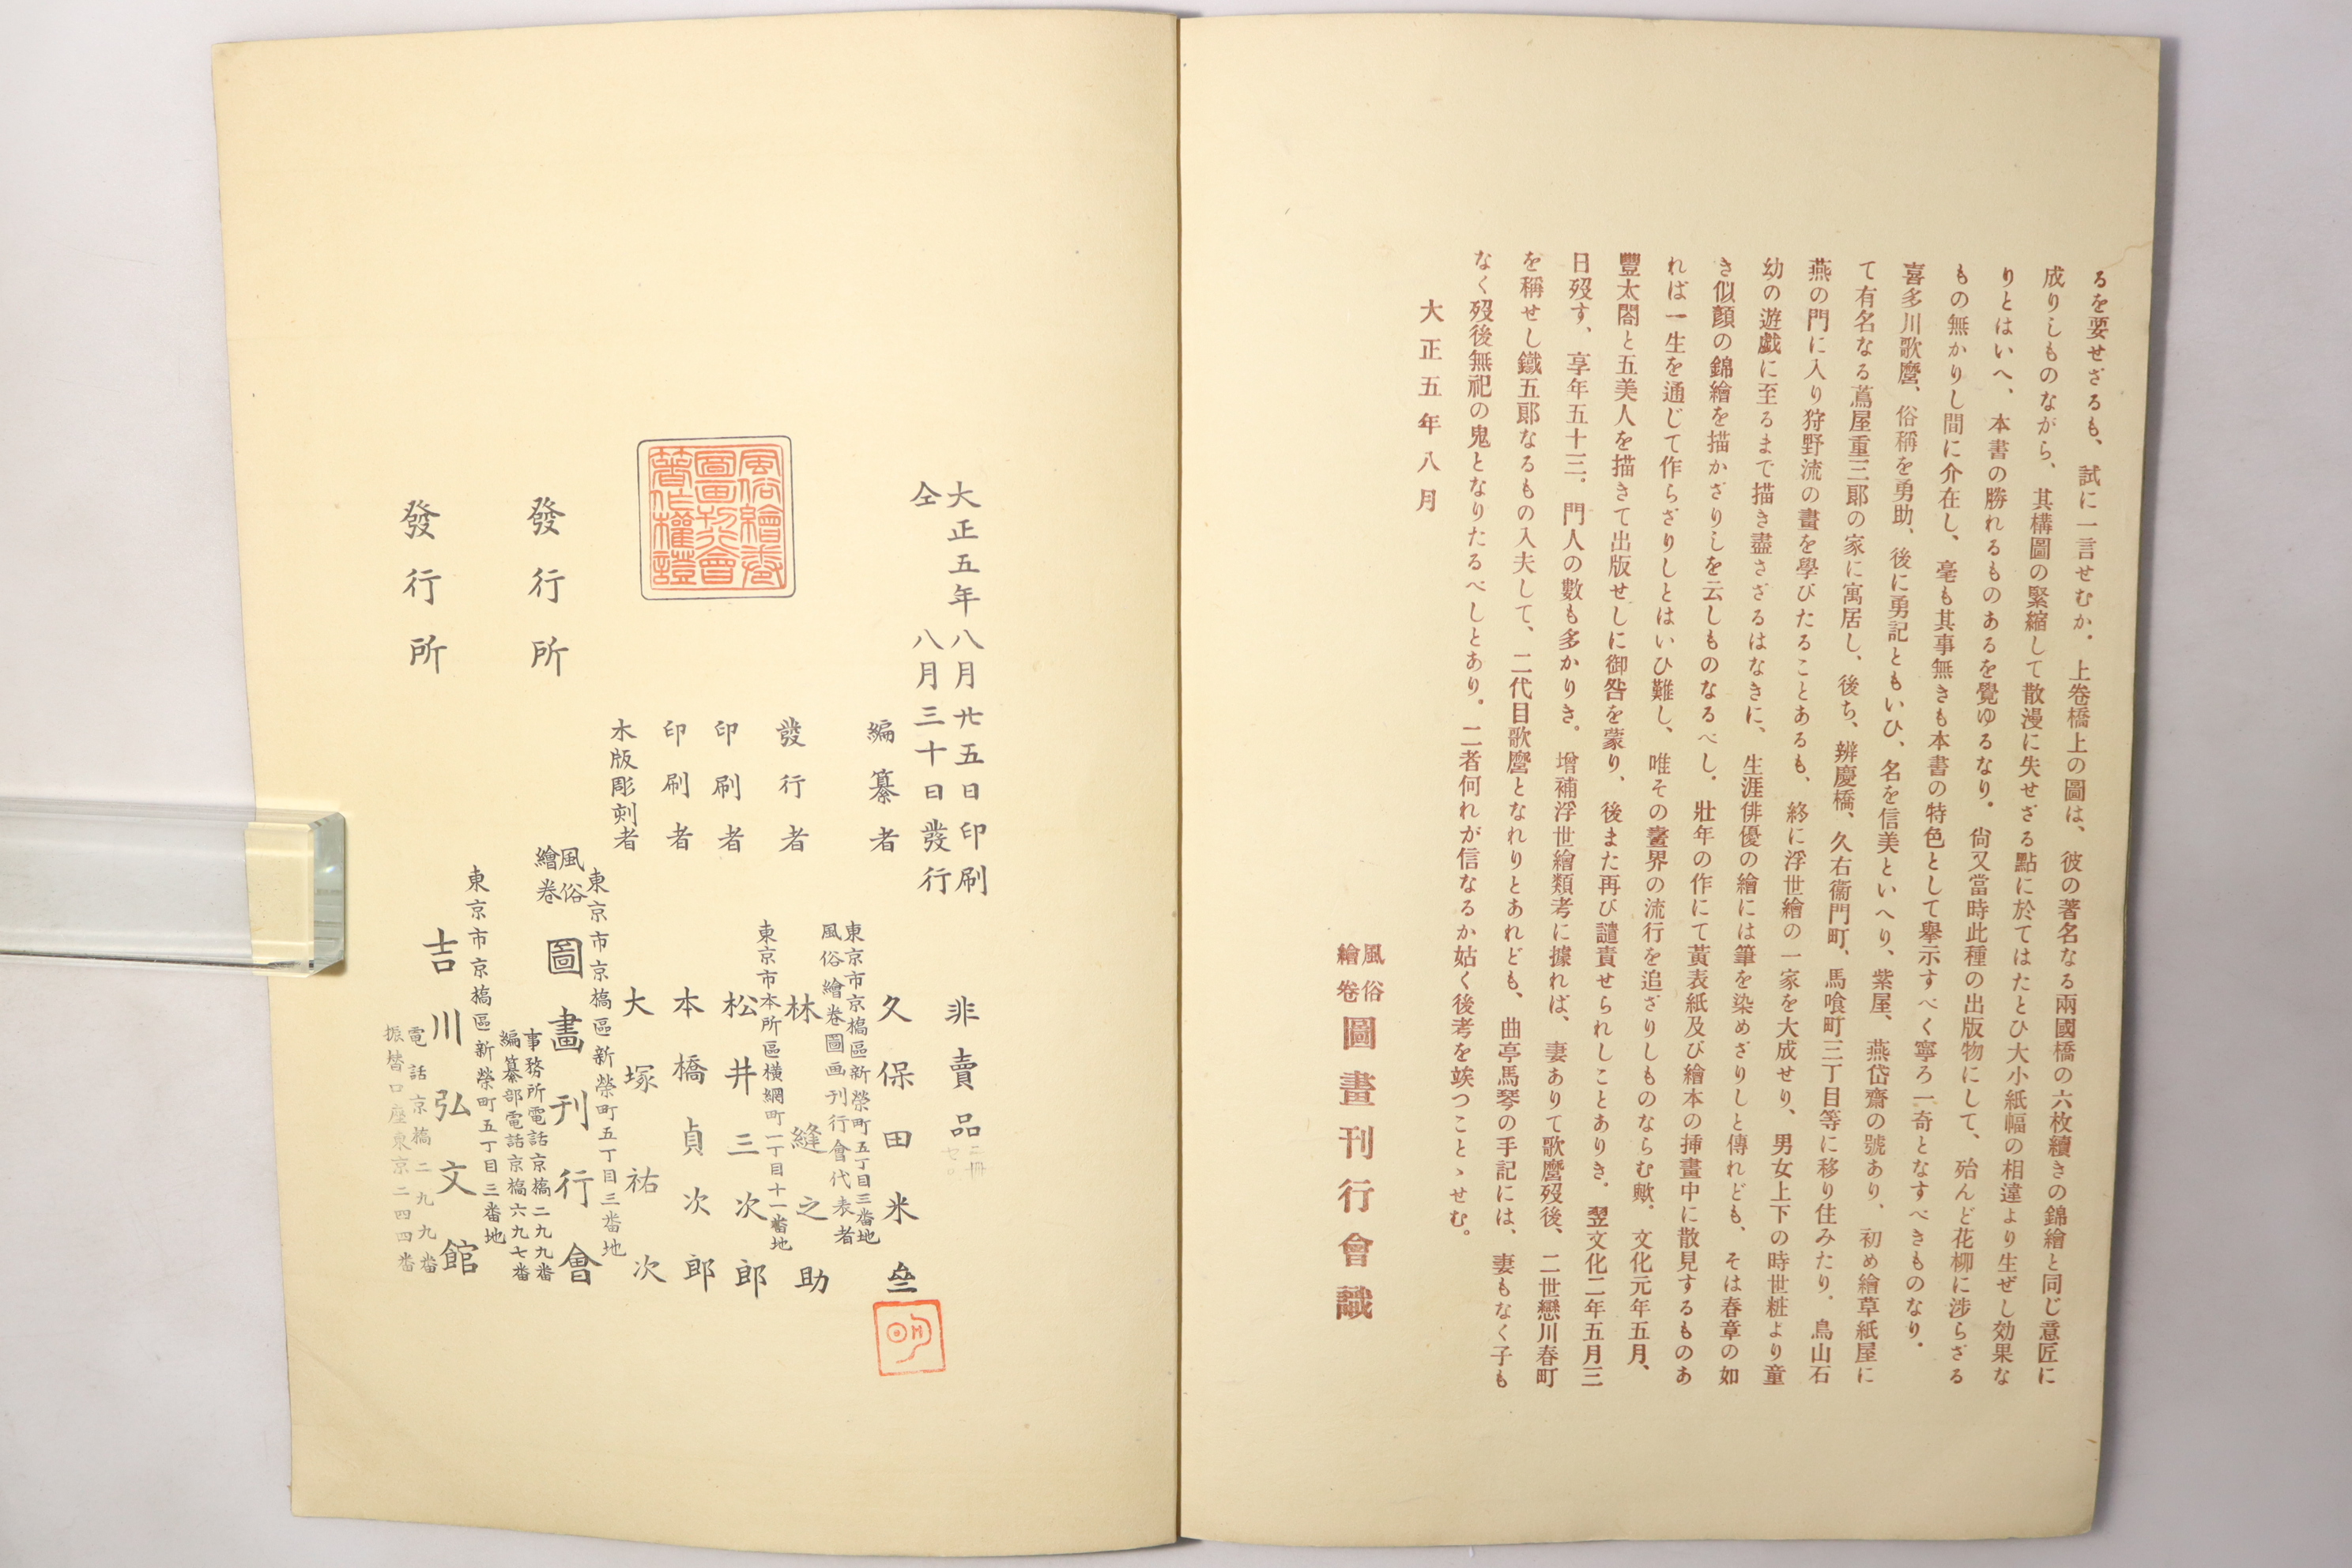 るを要せざるも、試に一言せむか。上卷橋上の圖は、彼の著名なる兩國橋の六枚續きの錦繪と同じ意匠に
成りしものながら、其構圖の緊縮して散漫に失せざる點に於てはたとひ大小紙幅の相違より生ぜし効果な
りとはいへ、本書の勝れるものあるを覺ゆるなり。尙又當時此種の出版物にして、殆んど花柳に涉らざる
もの無かりし間に介在し、毫も其事無きも本書の特色として擧示すべく寧ろ一奇となすべきものなり。
喜多川歌麿、俗稱を勇助、後に勇記ともいひ、名を信美といへり、紫屋、燕岱齋の號あり、初め繪草紙屋に
て有名なる蔦屋重三郎の家に寓居し、後ち、辨慶橋、久右衞門町、馬喰町三丁目等に移り住みたり。鳥山石
燕の門に入り狩野流の畫を學びたることあるも、終に浮世繪の一家を大成せり、男女上下の時世粧より童
幼の遊戲に至るまで描き盡さざるはなきに、生涯俳優の繪には筆を染めざりしと傳れども、そは春章の如
き似顏の錦繪を描かざりしを云しものなるべし。壯年の作にて黃表紙及び繪本の挿畫中に散見するものあ
れば一生を通じて作らざりしとはいひ難し、唯その畫界の流行を追ざりしものならむ歟。文化元年五月、
豐太閤と五美人を描きて出版せしに御咎を蒙り、後また再び譴責せられしことありき。翌文化二年五月三
日歿す、享年五十三。門人の數も多かりき。增補浮世繪類考に據れば、妻ありて歌麿歿後、二世戀川春町
を稱せし鐵五郞なるもの入夫して、二代目歌麿となれりとあれども、曲亭馬琴の手記には、妻もなく子も
なく歿後無祀の鬼となりたるべしとあり。二者何れが信なるか姑く後考を竢つことゝせむ。
大正五年八月
風俗繪卷圖畫刊行會識
大正五年八月廿五日印刷
仝八月三十日發行
非賣品
二冊
編纂者 久保田米斎
東京市京橋區新榮町五丁目三番地
風俗繪卷圖画刊行會代表者
發行者 林縫之助
東京市本所區横網町一丁目十一番地
印刷者 松井三次郎
印刷者 本橋貞次郎
木版彫刻者 大塚祐次
風俗繪卷圖畫刊行會著作權證
東京市京橋區新榮町五丁目三番地
發行所 風俗繪卷圖畫刊行會
事務所電話京橋二九九番
編纂部電話京橋六九七番
東京市京橋區新榮町五丁目三番地
發行所 吉川弘文館
電話京橋二九九番
振替口座東京二四四番